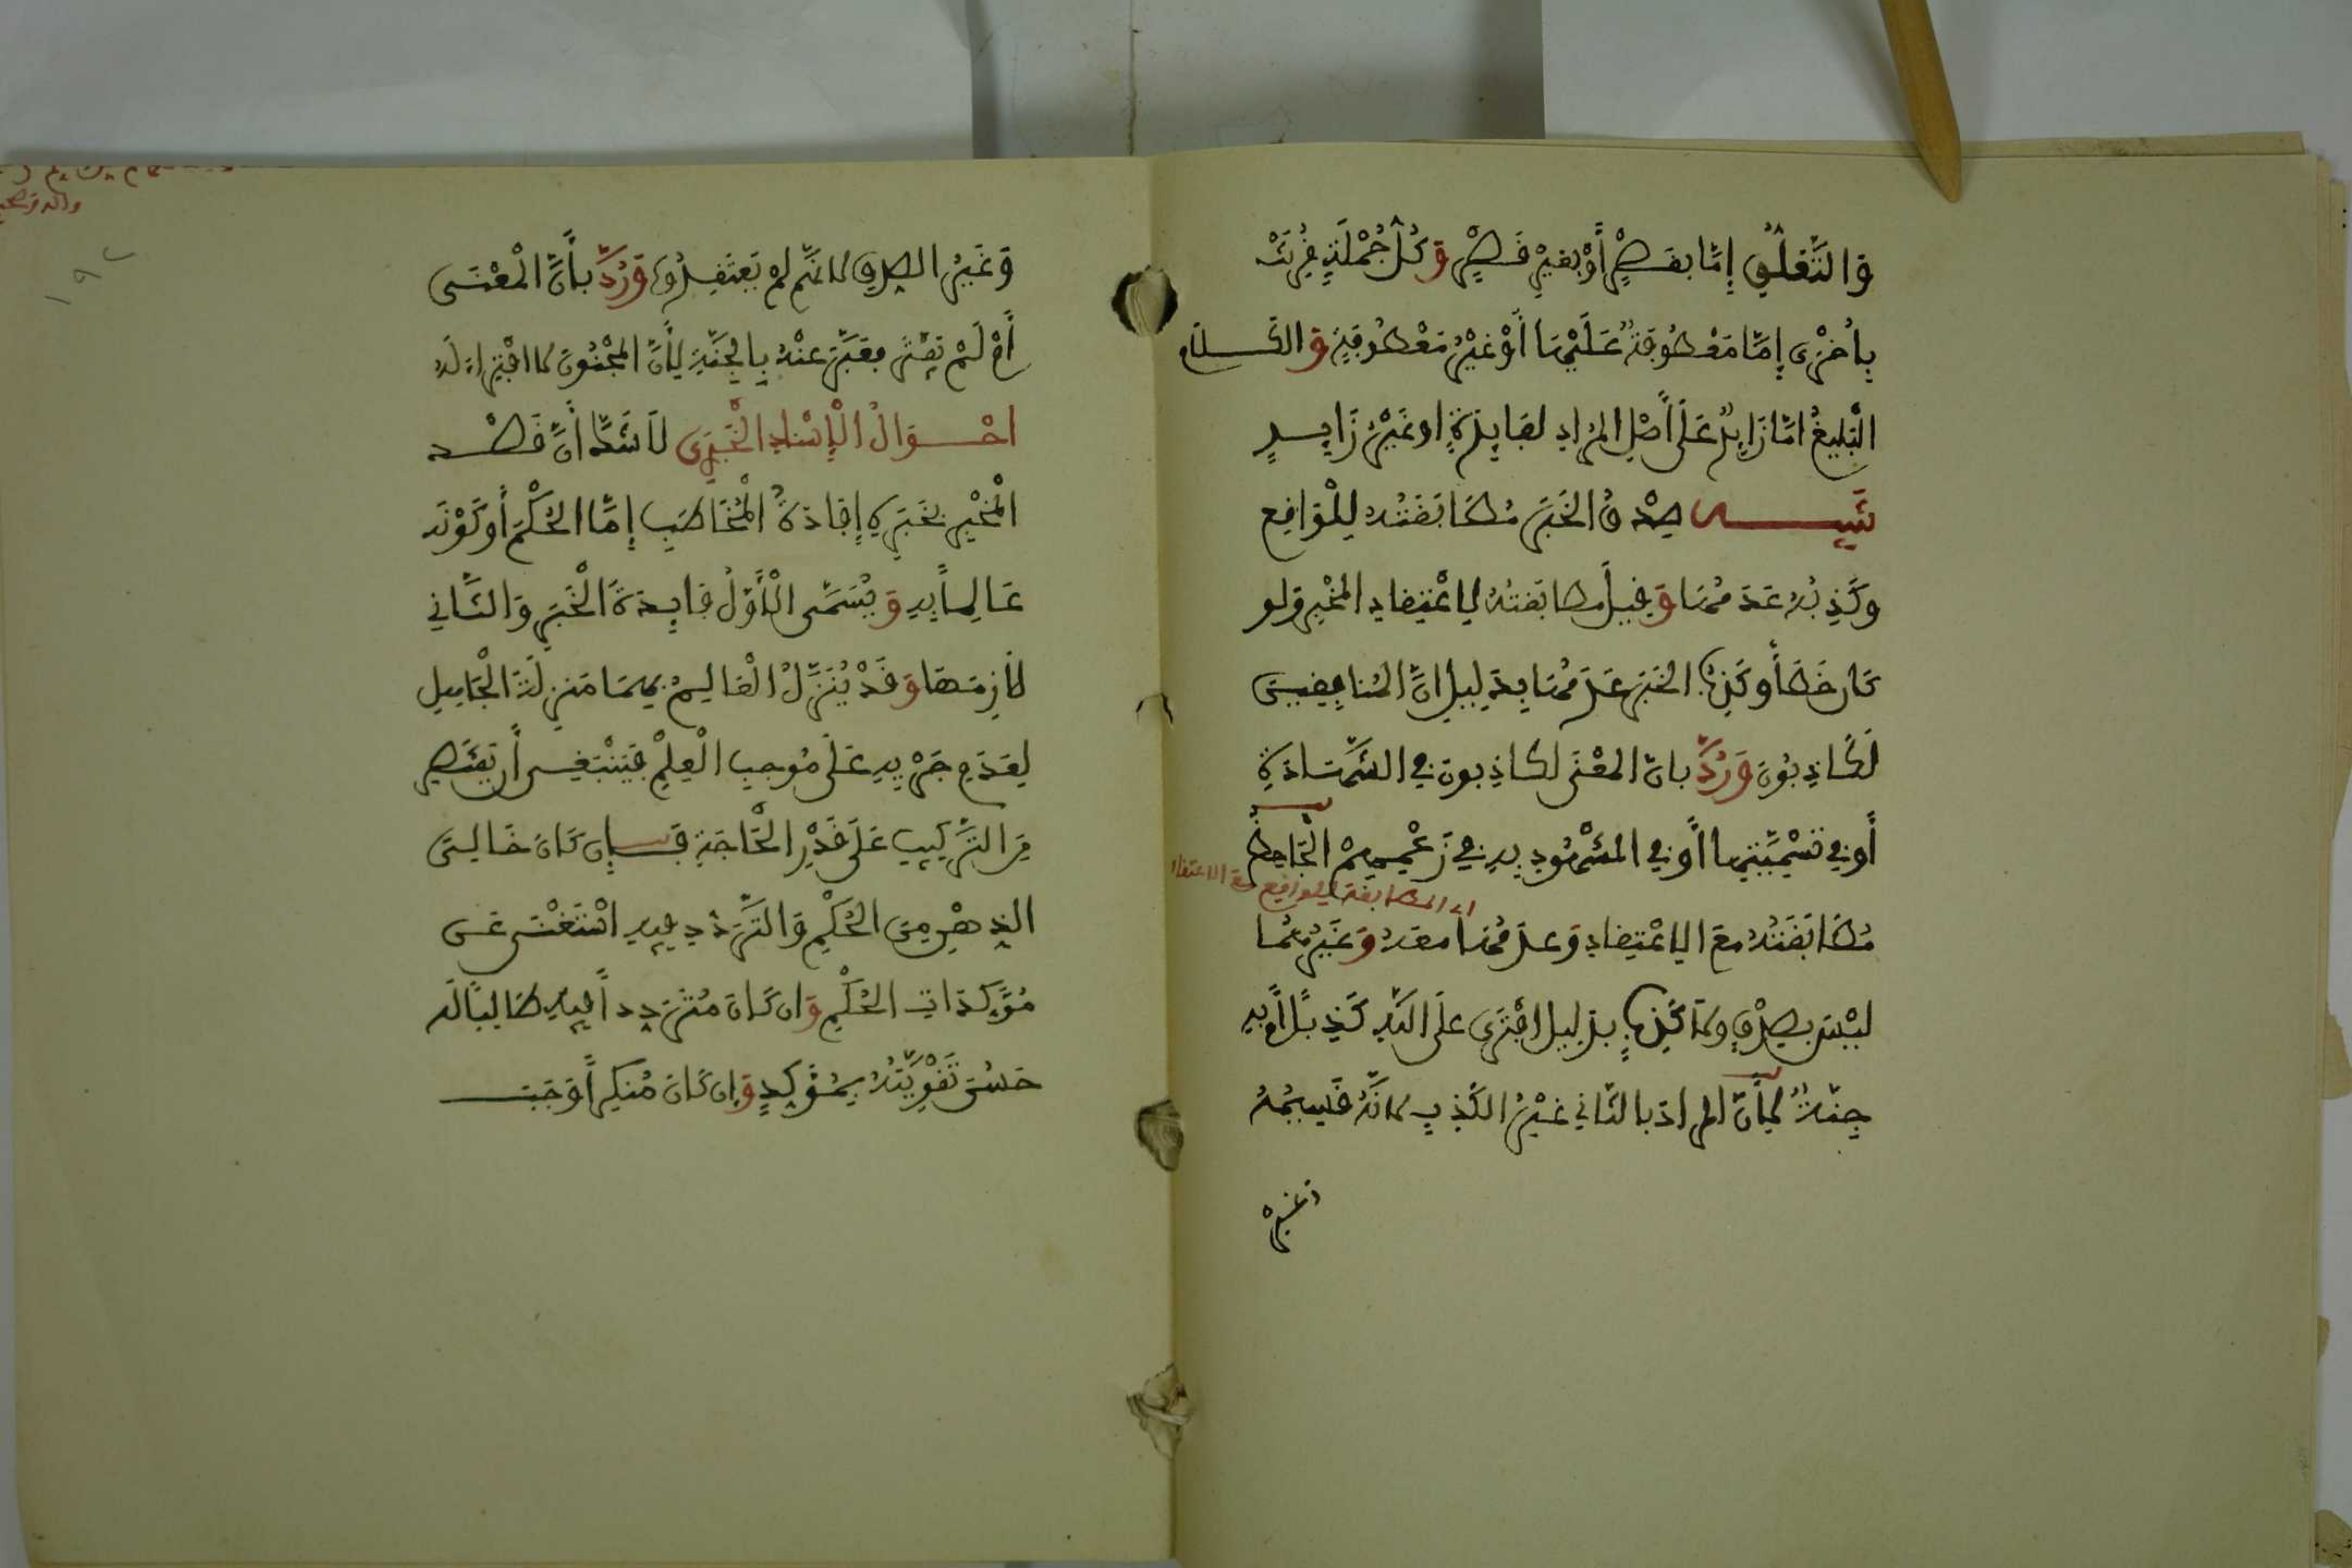 وَالتَّعَلُّقُ إِمَّا بقَصْرٍ أَوْ بِغَيْرِ قَصْرٍ وَكُلُّ جُمْلَةٍ قُرِنَتْ
بِأُخْرَى إِمَّا مَعْطُوفَةٌ عَلَيْهَا أَوْ غَيْرُ مَعْطُوفَةٍ وَالكَلَام
الْبَلِيغُ امَّا زَايِدٌ عَلَى أَصْلِ المُرَادِ لفَايِدَةٍ اوغَيْرُ زَايِدٍ
تنبيه صِدْقُ الخَبَرِ مُطَابَقَتُهُ لِلْوَاقِعِ
وكَذِبُهُ عَدَمُهَا وَقِيلَ مطابَقَتُهُ لِاعْتِقَادِ المُخْبِرِ ولو
كان خَطَأً وكَذِبُ الخَبَرِ عَدَمُهَا بِدَلِيلِ انَّ المُنَافِقِينَ
لَكَاذِبُونَ وَرُدَّ بانَّ المعْنَى لكاذِبونَ في الشَّهَادَةِ
أو في تَسْمِيَتِهَا أَو في المشْهُودِ بِهِ في زَعْمِهِمْ الْجَاحِظُ
اى المطابقة للواقع مع الاعتقاد
مُطَابَقَتُهُ معَ الِاعْتِقَادِ وَعدَمُهَا معَهُ وَغَيْرُهُمَا
ليْسَ بصِدْقٍ ولَا كَذِبٍ بدَلِيلِ افْتَرَى علَى اللَّهِ كَذِبًا أَم بِهِ
جِنَّةٌ لِأَنَّ المرادَ بالثَّاني غيْرُ الكَذِبِ لانَّهُ قَسِيمُهُ
وغير
وَغَيْرُ الصِّدْقِ لانَّهُم لمْ يَعْتَقِدُوهُ وَرُدَّ بأَنَّ الْمَعْنَى
أَمْ لَمْ يَفْتَرِ فعَبَّرَ عنْهُ بِالجِنَّةِ لِأَنَّ المجْنُونَ لا افْتِرَاءَ لَهُ
احْوَالُ الْإِسْنَادِ الْخَبَرِي لَا شَكَّ أَنَّ قَصْدَ
الْمُخْبِرِ بخَبَرِهِ إِفَادَةُ الْمُخَاطَبِ إِمَّا الحُكْمَ أو كَوْنَهُ
عَالِماً بِهِ وَيُسَمَّى الْأَوَّلُ فَايِدَةَ الْخَبَرِ وَالثَّانِي
لَازِمَهَا وَقَدْ يُنَزَّلُ الْعَالِمُ بِهِمَا مَنْزِلَةَ الْجَاهِلِ
لِعَدَمِ جَرْيِهِ عَلَى مُوجِبِ الْعِلْمِ فَيَنْبَغِي أَن يَقْتَصِرَ
مِنَ التَّرْكِيبِ عَلَى قَدْرِ الْحَاجَةِ فَإِن كَانَ خَالِيَ
الذِّهْنِ مِنَ الحُكْمِ وَالتَّرَدُّدِ فِيهِ اسْتَغْنَى عَن
مُؤَكِّدَاتِ الحُكْمِ وَان كَانَ مُتَرَدِّداً فِيهِ طَالِبًا لَه
حَسُنَ تَقْوِيَتُهُ بِمُؤَكِّدٍ وَإِن كَانَ مُنكِراً وَجَبَ
١٩٢